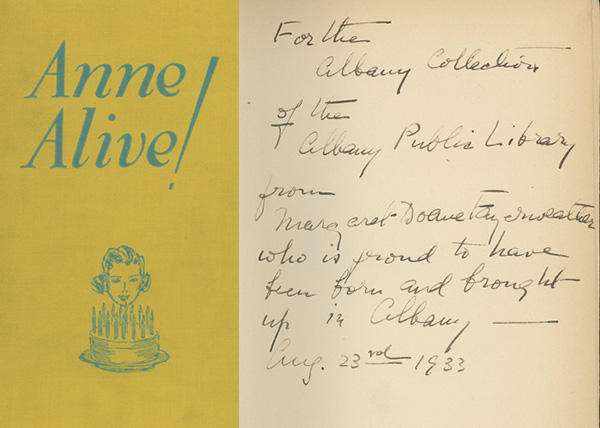 Anne
Alive!
For the
Albany Collection
of the
Albany Public Library
from
Margaret Doane Fayerweather
who is proud to have
been born and brought
up in Albany —
Aug. 23rd 1933